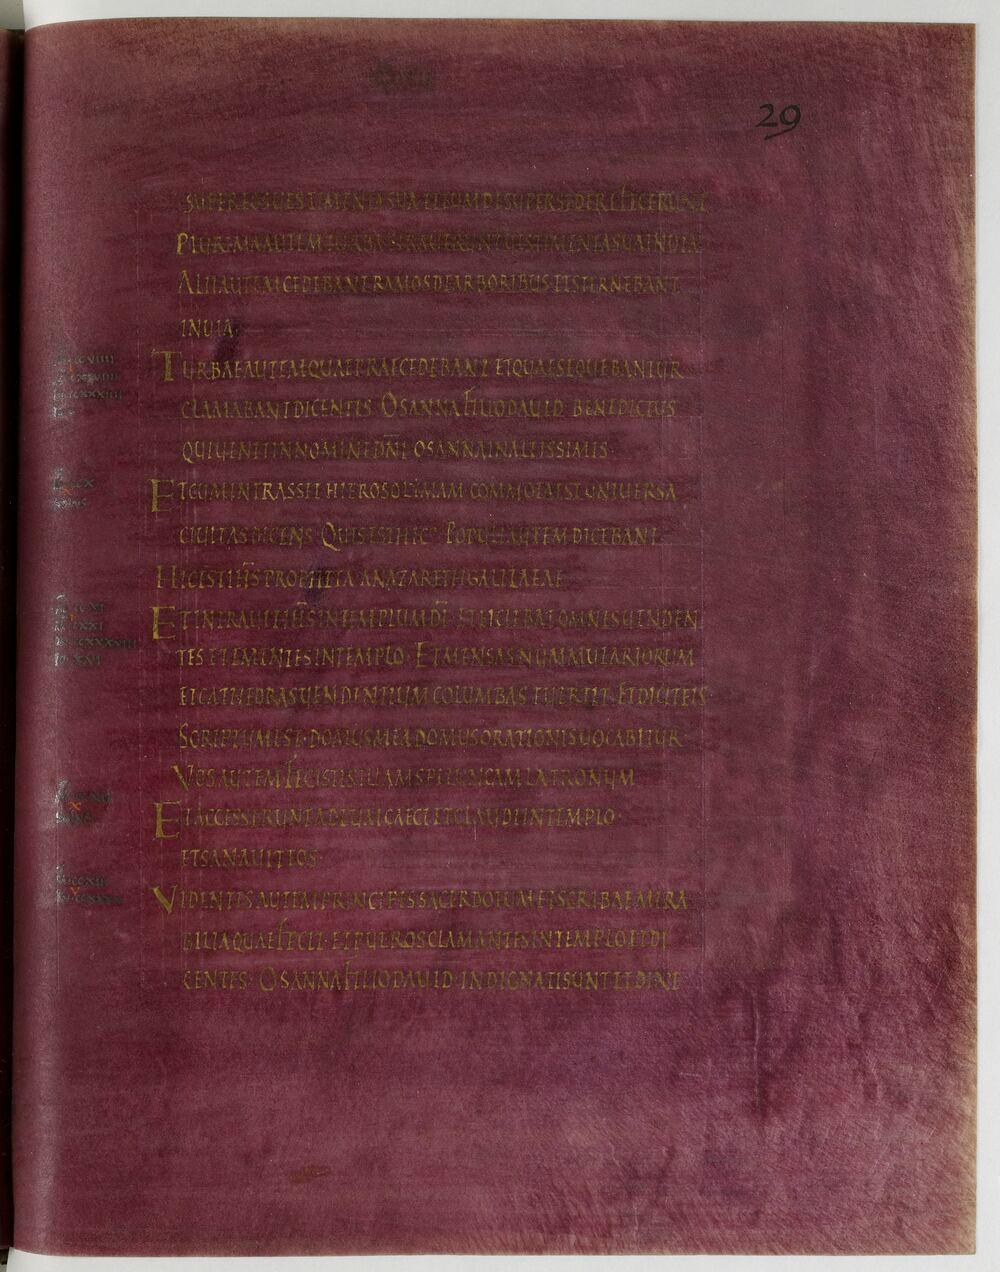 29
SUPER EOS UESTIMENTA SUA ET EUM DESUPER SEDERE FECERUNT
PLURIMA AUTEM TURBA STRAUERUNT UESTIMENTA SUA IN UIA
ALII AUTEM CEDEBANT RAMOS DE ARBORIBUS ET STERNEBANT
IN UIA·
TURBAE AUTEM QUAE PRAECEDEBANT ET QUAE SEQUEBANTUR
CLAMABANT DICENTES· OSANNA FILIO DAUID BENEDICTUS
QUI UENIT IN NOMINE DNI· OSANNA IN ALTISSIMIS·
ET CUM INTRASSET HIEROSOLIMAM COMMOTA EST UNIUERSA
CIUITAS DICENS· QUIS EST HIC· POPULI AUTEM DICEBANT·
HIC EST IHS PROPHETA A NAZARETH GALILAEAE·
ET INTRAUIT IHS IN TEMPLUM DI· ET EICIEBAT OMNES UENDEN
TES ET EMENTES IN TEMPLO· ET MENSAS NUMMULARIORUM
ET CATHEDRAS UENDENTIUM COLUMBAS EUERTIT· ET DICIT EIS·
SCRIPTUM EST· DOMUS MEA DOMUS ORATIONIS UOCABITUR·
VOS AUTEM FECISTIS ILLAM SPELUNCAM LATRONUM
ET ACCESSERUNT AD EUM CAECI ET CLAUDI IN TEMPLO·
ET SANAUIT EOS·
VIDENTES AUTEM PRINCIPES SACERDOTUM ET SCRIBAE MIRA
BILIA QUAE FECIT· ET PUEROS CLAMANTES IN TEMPLO ET DI
CENTES· OSANNA FILIO DAUID· INDIGNATI SUNT ET DIXE